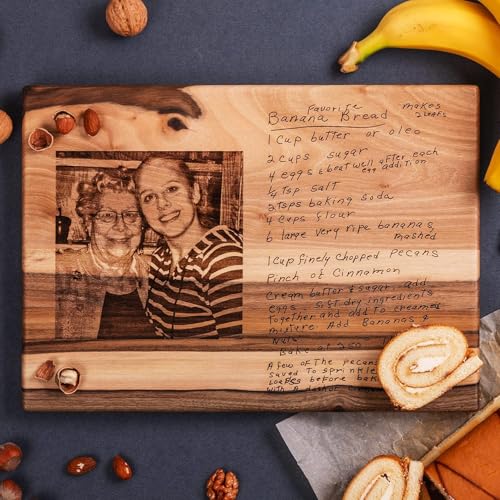 Favorite
Banana Bread makes
2 Loafs
1 Cup butter or oleo
2 Cups sugar
4 eggs & beat well after each
egg addition
1/4 tsp salt
2 tsps baking soda
4 cups flour
6 large very ripe bananas
mashed
1 Cup finely chopped pecans
Pinch of Cinnamon
Cream butter & sugar add
eggs. Sift dry ingredients
together and add to creamed
mixture. Add Bananas &
Nuts
Bake at 350
A few of the pecans
saved to sprinkle
Loafs before bak